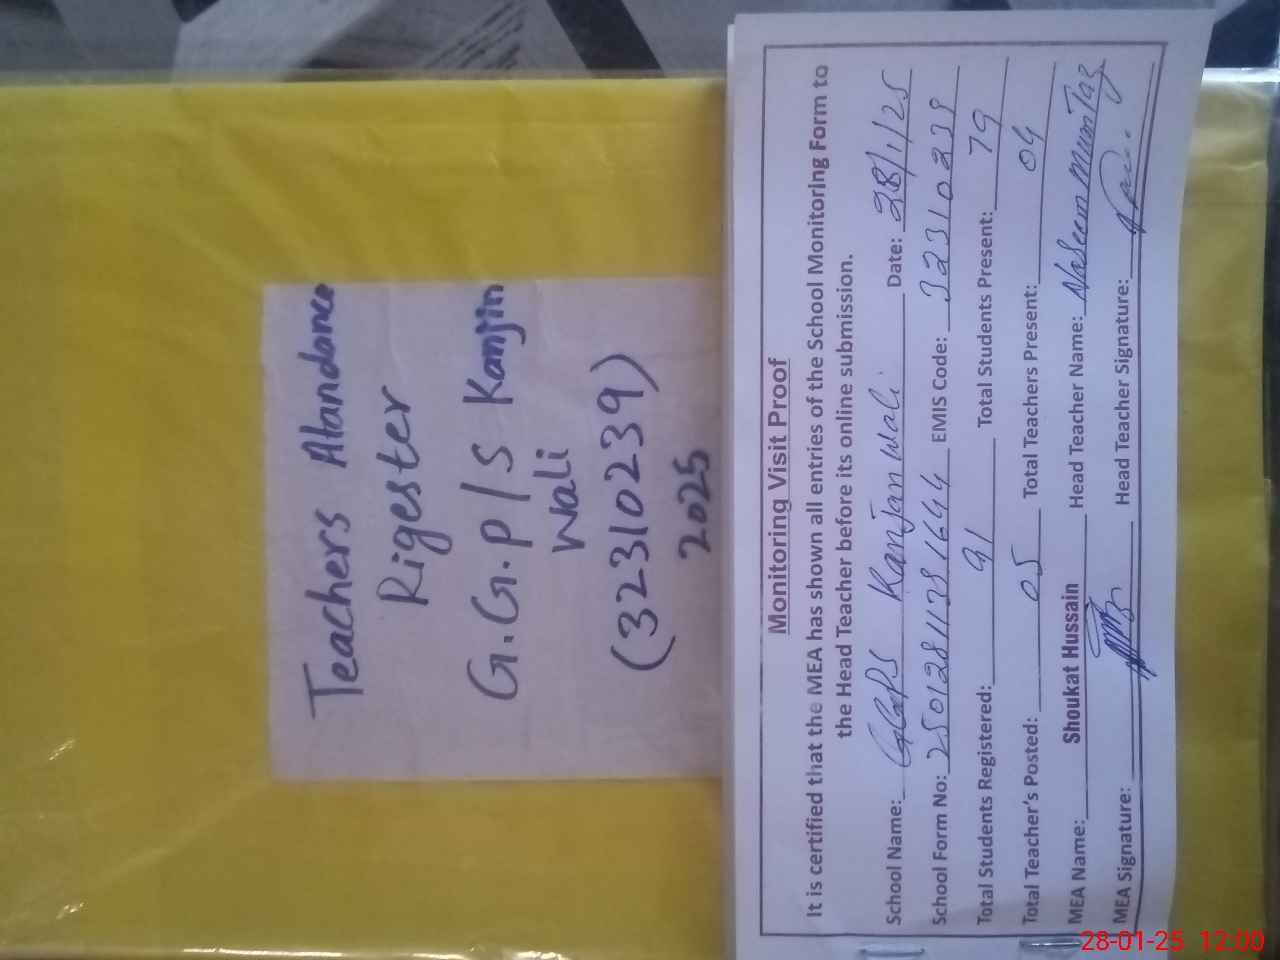 Teachers Atandance
Rigester
G.G.P/S Kanjin
Wali
(32310239)
2025
Monitoring Visit Proof
It is certified that the MEA has shown all entries of the School Monitoring Form to
the Head Teacher before its online submission.
School Name: GGPS Kanjan Wali Date: 28/1/25
School Form No: 25012811381644 EMIS Code: 32310239
Total Students Registered: 91 Total Students Present: 79
Total Teacher's Posted: 05 Total Teachers Present: 04
MEA Name: Shoukat Hussain Head Teacher Name: Naseem Mumtaz
MEA Signature: Head Teacher Signature:
28-01-25 12:00